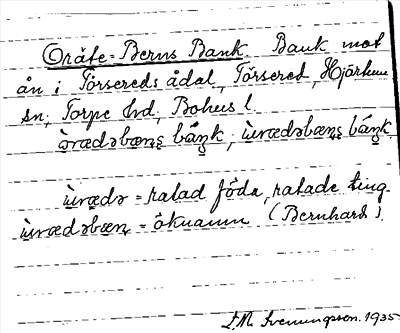 Oräte-Berns Bank. Bank mot
ån i Torsereds ådal, Torsered, Hjärtum
sn, Torpe hd, Bohus l.
òrædəbæņş báŋk, ùrædəbæņş báŋk.
ùrædə = ratad föda, ratade ting.
ùrædəbæņ = öknamn (Bernhard).
F.M. Svenungsson. 1935